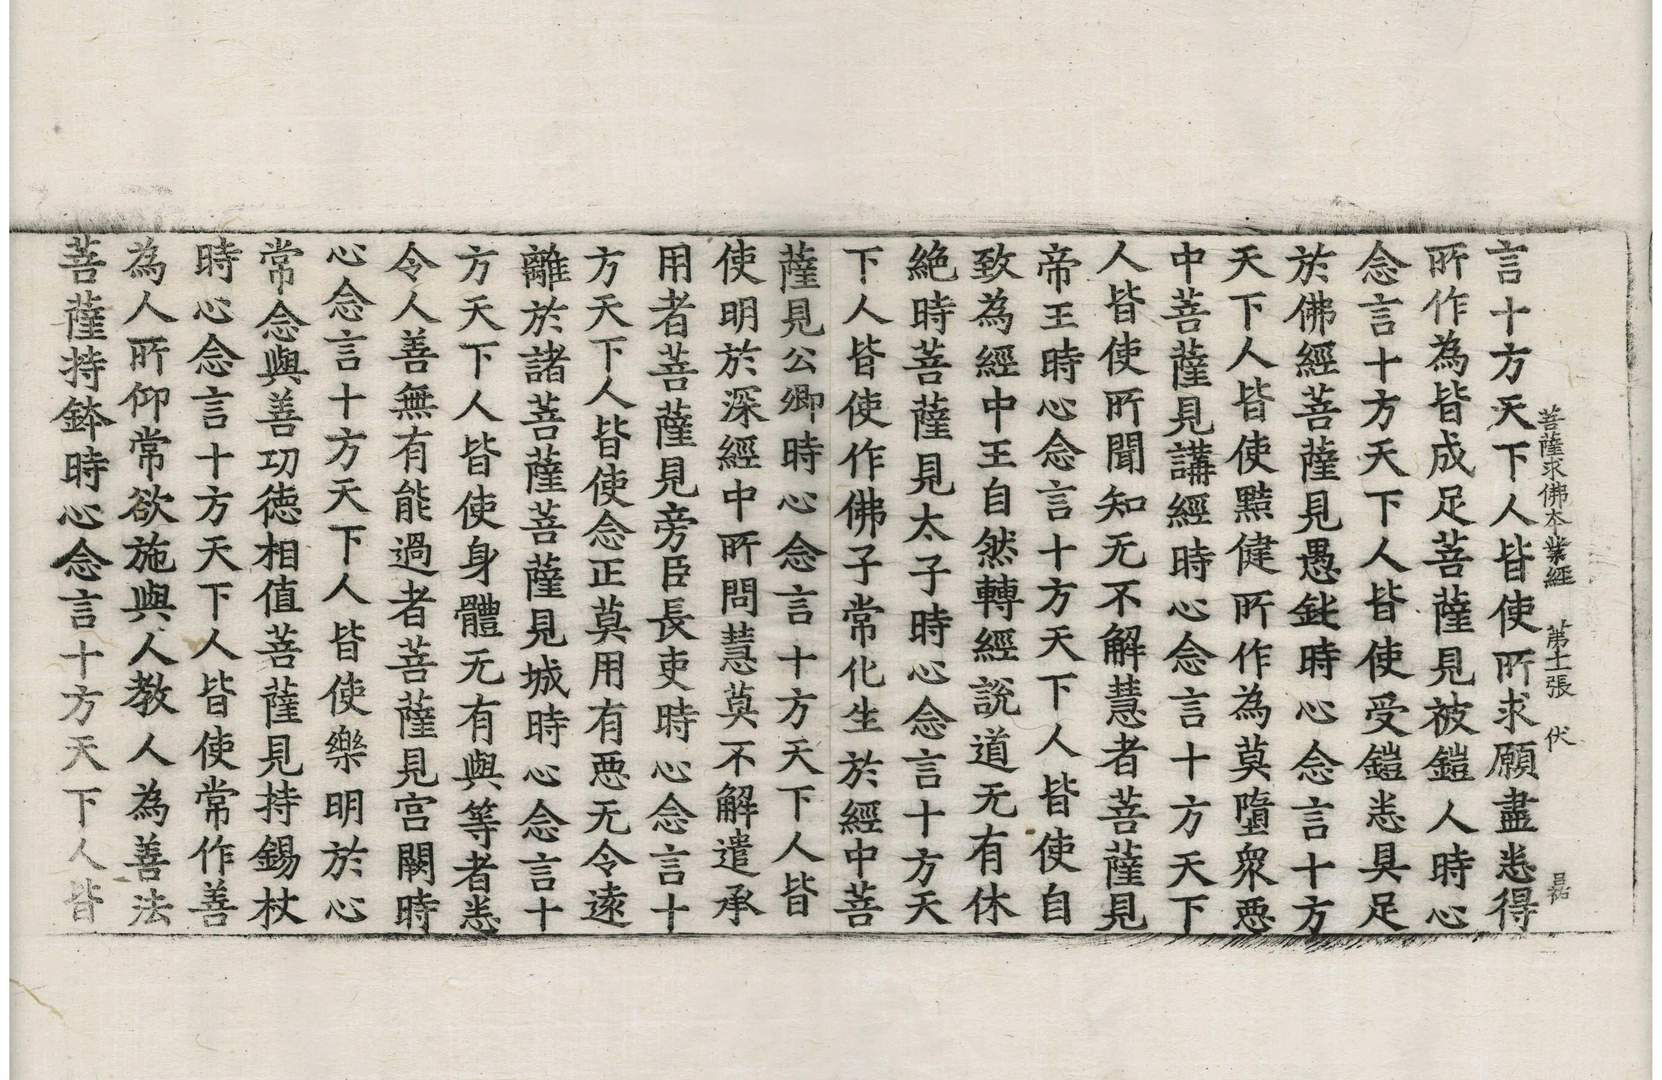 菩薩求佛本業經 第十一張 伏
言十方天下人皆使所求願盡悉得
所作為皆成足菩薩見被鎧人時心
念言十方天下人皆使受鎧悉具足
於佛經菩薩見愚鈋時心念言十方
天下人皆使黠健所作為莫墮衆惡
中菩薩見講經時心念言十方天下
人皆使所聞知无不解慧者菩薩見
帝王時心念言十方天下人皆使自
致為經中王自然轉經說道无有休
絶時菩薩見太子時心念言十方天
下人皆使作佛子常化生於經中菩
薩見公卿時心念言十方天下人皆
使明於深經中所問慧莫不解遣承
用者菩薩見旁臣長吏時心念言十
方天下人皆使念正莫用有惡无令遠
離於諸菩薩菩薩見城時心念言十
方天下人皆使身體无有與等者悉
令人善無有能過者菩薩見宫闕時
心念言十方天下人皆使樂明於心
常念與善功德相值菩薩見持錫杖
時心念言十方天下人皆使常作善
為人所仰常欲施與人教人為善法
菩薩持鉢時心念言十方天下人皆